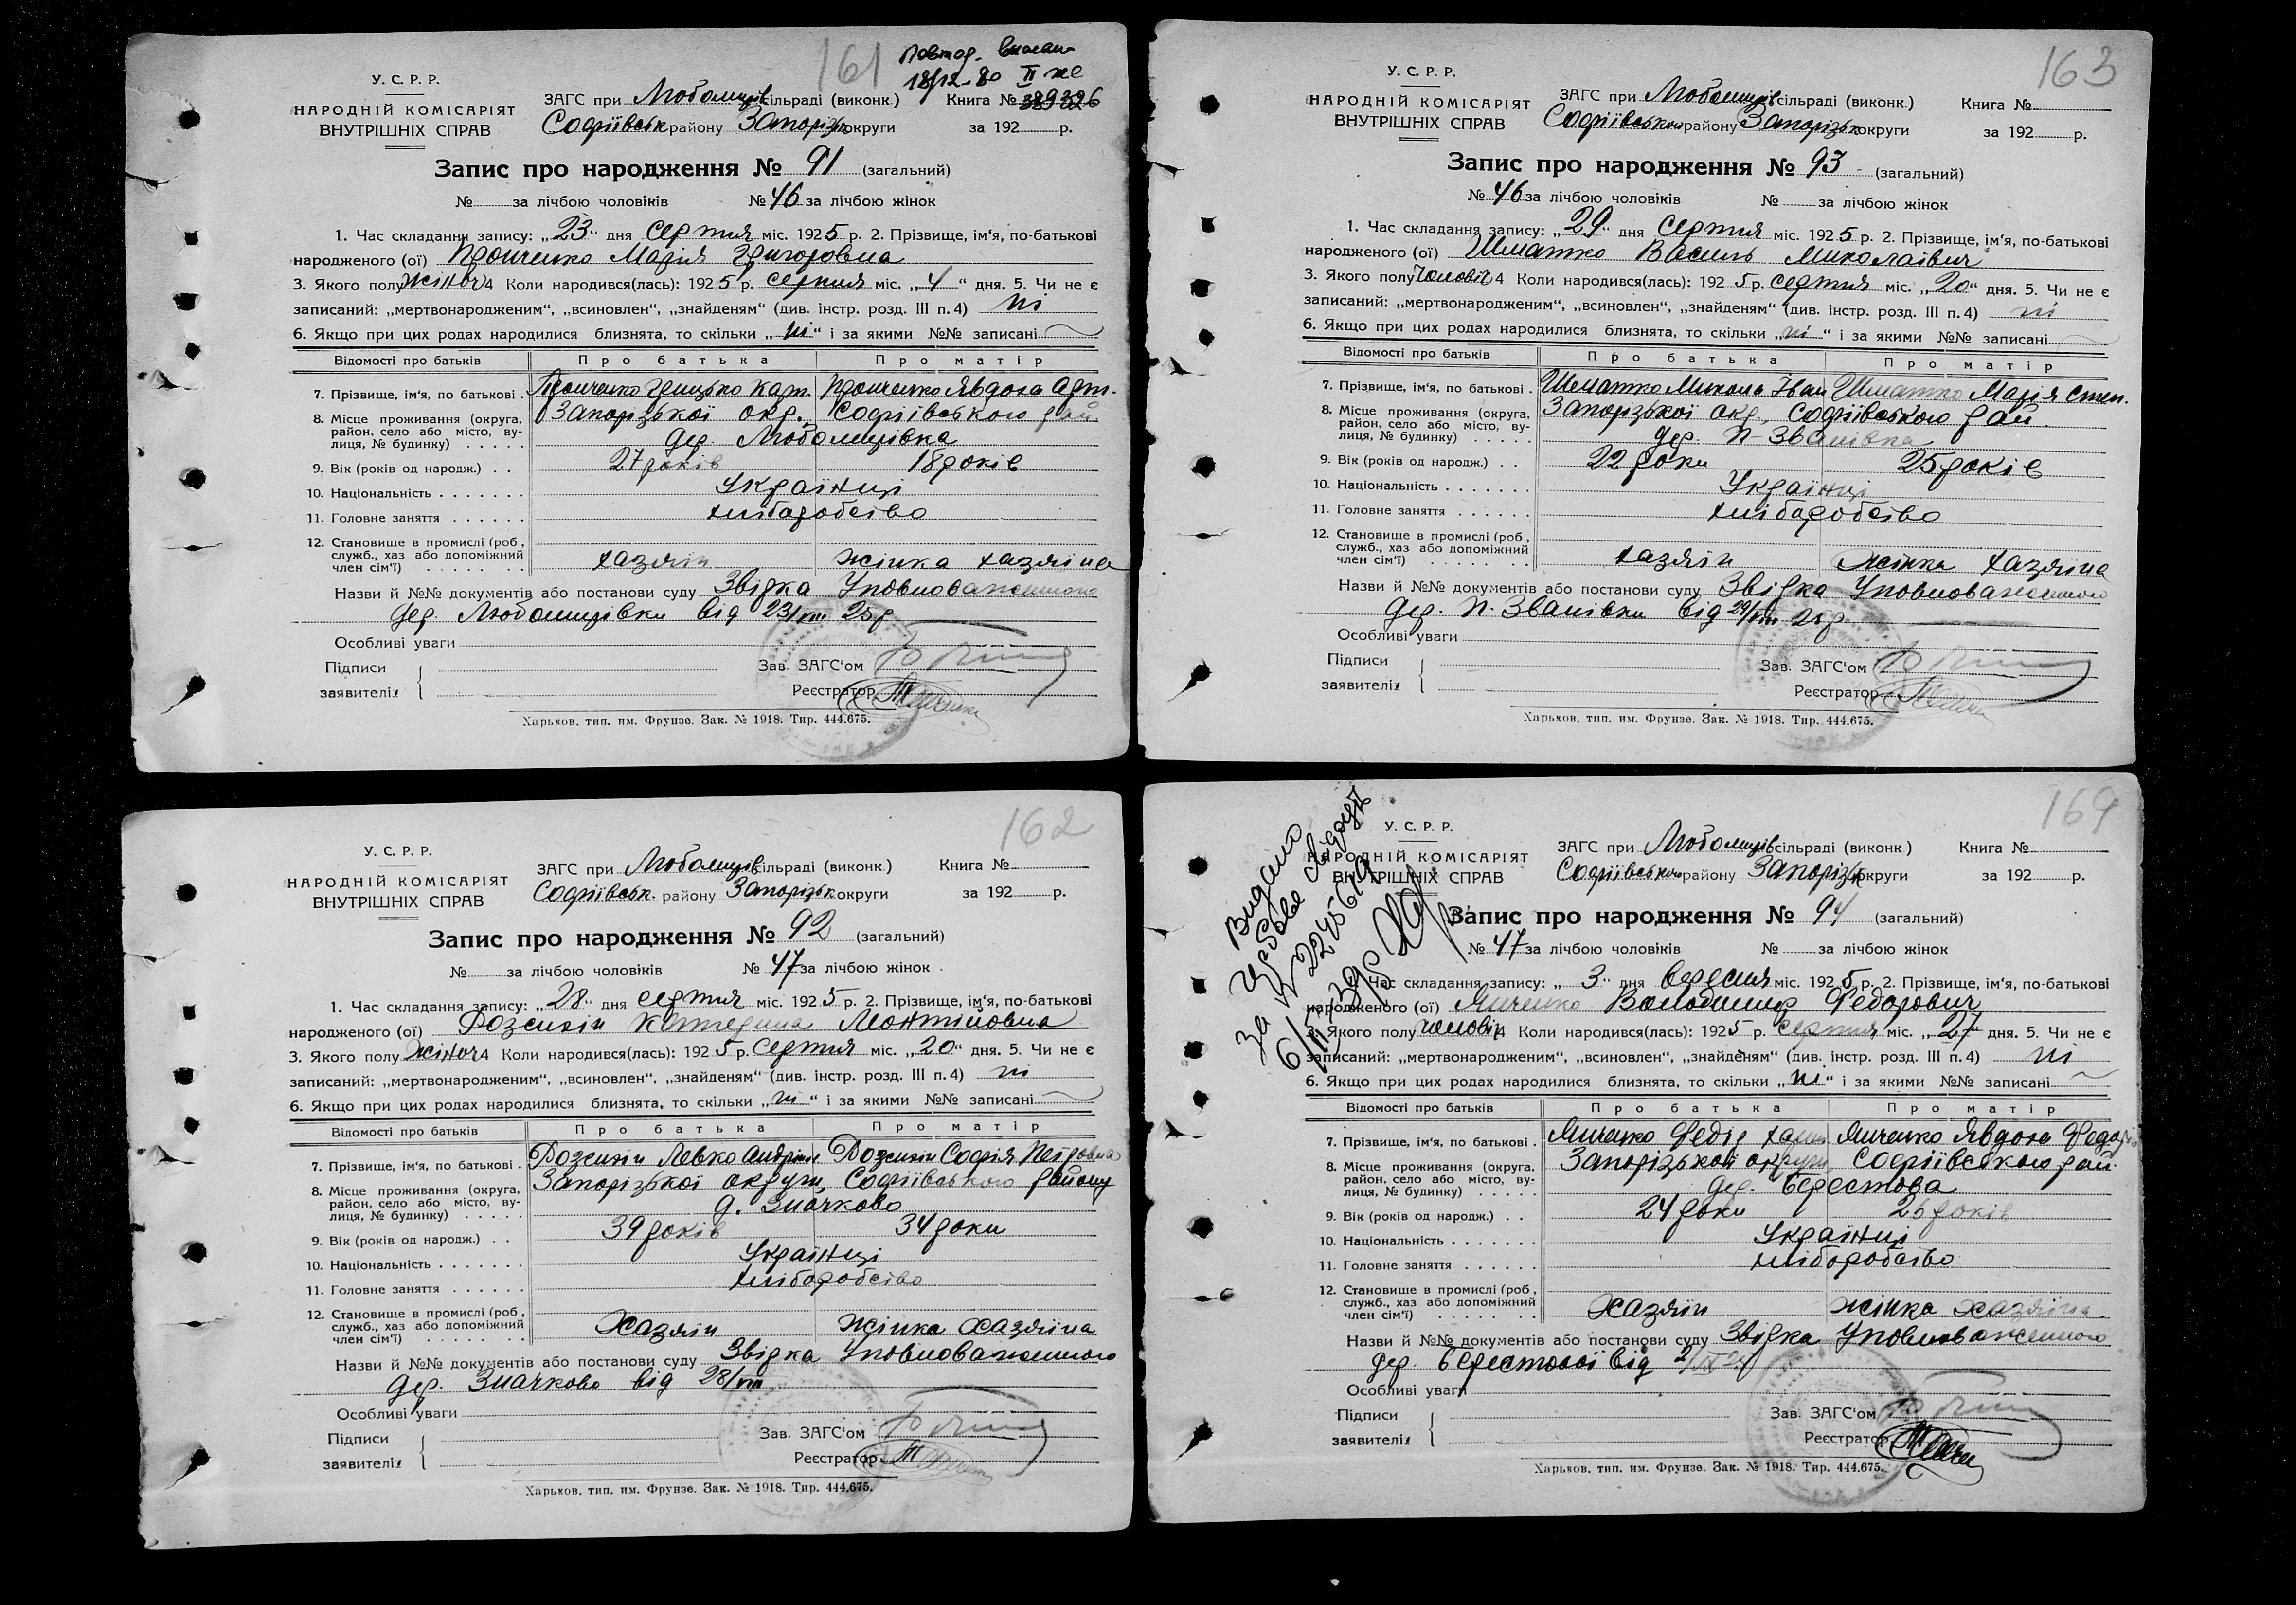 161
Повтор. выдан
18/12-80 II ЖС
389326
У. С. Р. Р.
НАРОДНІЙ КОМІСАРІЯТ
ВНУТРІШНІХ СПРАВ
ЗАГС при Любомирів сільраді (виконк.) Книга №
Софіївськ району Запорізьк округи за 192 р.
Запис про народження № 91 (загальний)
№ за лічбою чоловіків № 46 за лічбою жінок
1. Час складання запису: „23“ дня серпня міс. 1925 р. 2. Прізвище, ім‘я, по-батькові
народженого (ої) Проценко Марія Григоровна
3. Якого полу жіноч 4 Коли народився(лась): 1925 р. серпня міс. „4“ дня. 5. Чи не є
записаний: „мертвонародженим“, „всиновлен“, „знайденям“ (див. інстр. розд. III п. 4) ні
6. Якщо при цих родах народилися близнята, то скільки „ні“ і за якими №№ записані
Відомості про батьків Про батька Про матір
7. Прізвище, ім‘я, по батькові . Проценко Грицько Карп. Проценко Явдоха
8. Місце проживання (округа, район, село або місто, вулиця, № будинку) Запорізької окр. Софіївського рай.
дер. Любомирівка
9. Вік (років од народж.) . . 27 років 18 років
10. Національність Українці
11. Головне заняття хліборобство
12. Становище в промислі (роб, служб., хаз або допоміжний член сім‘ї) хазяїн жінка хазяїна
Назви й №№ документів або постанови суду Звідка Уповноваженного
дер. Любомирівки від 23/VIII 25 р
Особливі уваги
Підписи
заявителів
Зав. ЗАГС‘ом
Реєстратор
Харьков. тип. им. Фрунзе. Зак. № 1918. Тир. 444.675.
163
У. С. Р. Р.
НАРОДНІЙ КОМІСАРІЯТ
ВНУТРІШНІХ СПРАВ
ЗАГС при Любомирів сільраді (виконк.) Книга №
Софіївського району Запорізьк округи за 192 р.
Запис про народження № 93 (загальний)
№ 46 за лічбою чоловіків № за лічбою жінок
1. Час складання запису: „29“ дня серпня міс. 1925 р. 2. Прізвище, ім‘я, по-батькові
народженого (ої) Шматко Василь Миколаівич
3. Якого полу чоловіч 4 Коли народився(лась): 1925 р. серпня міс. „20“ дня. 5. Чи не є
записаний: „мертвонародженим“, „всиновлен“, „знайденям“ (див. інстр. розд. III п. 4) ні
6. Якщо при цих родах народилися близнята, то скільки „ні“ і за якими №№ записані
Відомості про батьків Про батька Про матір
7. Прізвище, ім‘я, по батькові . Шматко Микола Іван Шматко Марія Степ.
8. Місце проживання (округа, район, село або місто, вулиця, № будинку) Запорізької окр., Софіївського рай.
дер. П-Званівка
9. Вік (років од народж.) . . 22 роки 25 років
10. Національність Українці
11. Головне заняття хліборобство
12. Становище в промислі (роб, служб., хаз або допоміжний член сім‘ї) хазяїн жінка хазяїна
Назви й №№ документів або постанови суду Звідка Уповноваженного
дер. П. Званівки від 29/VIII 25 р.
Особливі уваги
Підписи
заявителів
Зав. ЗАГС‘ом
Реєстратор
Харьков. тип. им. Фрунзе. Зак. № 1918. Тир. 444.675.
162
У. С. Р. Р.
НАРОДНІЙ КОМІСАРІЯТ
ВНУТРІШНІХ СПРАВ
ЗАГС при Любомирів сільраді (виконк.) Книга №
Софіївськ. району Запорізьк округи за 192 р.
Запис про народження № 92 (загальний)
№ за лічбою чоловіків № 47 за лічбою жінок
1. Час складання запису: „28“ дня серпня міс. 1925 р. 2. Прізвище, ім‘я, по-батькові
народженого (ої) Катерина
3. Якого полу жіноч 4 Коли народився(лась): 1925 р. серпня міс. „20“ дня. 5. Чи не є
записаний: „мертвонародженим“, „всиновлен“, „знайденям“ (див. інстр. розд. III п. 4) ні
6. Якщо при цих родах народилися близнята, то скільки „ні“ і за якими №№ записані
Відомості про батьків Про батька Про матір
7. Прізвище, ім‘я, по батькові . Левко Софія Петровна
8. Місце проживання (округа, район, село або місто, вулиця, № будинку) Запорізької округи, Софіївського району
д. Значково
9. Вік (років од народж.) . . 39 років 34 роки
10. Національність Українці
11. Головне заняття хліборобство
12. Становище в промислі (роб, служб., хаз або допоміжний член сім‘ї) Хазяїн жінка хазяїна
Назви й №№ документів або постанови суду Звідка Уповноваженного
дер. Значково від 28/VIII
Особливі уваги
Підписи
заявителів
Зав. ЗАГС‘ом
Реєстратор
Харьков. тип. им. Фрунзе. Зак. № 1918. Тир. 444.675.
164
Видано
за №
У. С. Р. Р.
НАРОДНІЙ КОМІСАРІЯТ
ВНУТРІШНІХ СПРАВ
ЗАГС при Любомирів сільраді (виконк.) Книга №
Софіївського району Запорізьк округи за 192 р.
Запис про народження № 94 (загальний)
№ 47 за лічбою чоловіків № за лічбою жінок
1. Час складання запису: „3“ дня вересня міс. 1925 р. 2. Прізвище, ім‘я, по-батькові
народженого (ої) Яценко Володимир Федорович
3. Якого полу чоловіч 4 Коли народився(лась): 1925 р. серпня міс. „27“ дня. 5. Чи не є
записаний: „мертвонародженим“, „всиновлен“, „знайденям“ (див. інстр. розд. III п. 4) ні
6. Якщо при цих родах народилися близнята, то скільки „ні“ і за якими №№ записані
Відомості про батьків Про батька Про матір
7. Прізвище, ім‘я, по батькові . Яценко Федір Яценко Явдоха Федор
8. Місце проживання (округа, район, село або місто, вулиця, № будинку) Запорізької округи, Софіївського рай.
дер. Берестова
9. Вік (років од народж.) . . 24 роки 26 років
10. Національність Українці
11. Головне заняття хліборобство
12. Становище в промислі (роб, служб., хаз або допоміжний член сім‘ї) Хазяїн жінка хазяїна
Назви й №№ документів або постанови суду Звідка Уповноваженного
дер. Берестової від 2/IX 25
Особливі уваги
Підписи
заявителів
Зав. ЗАГС‘ом
Реєстратор
Харьков. тип. им. Фрунзе. Зак. № 1918. Тир. 444.675.